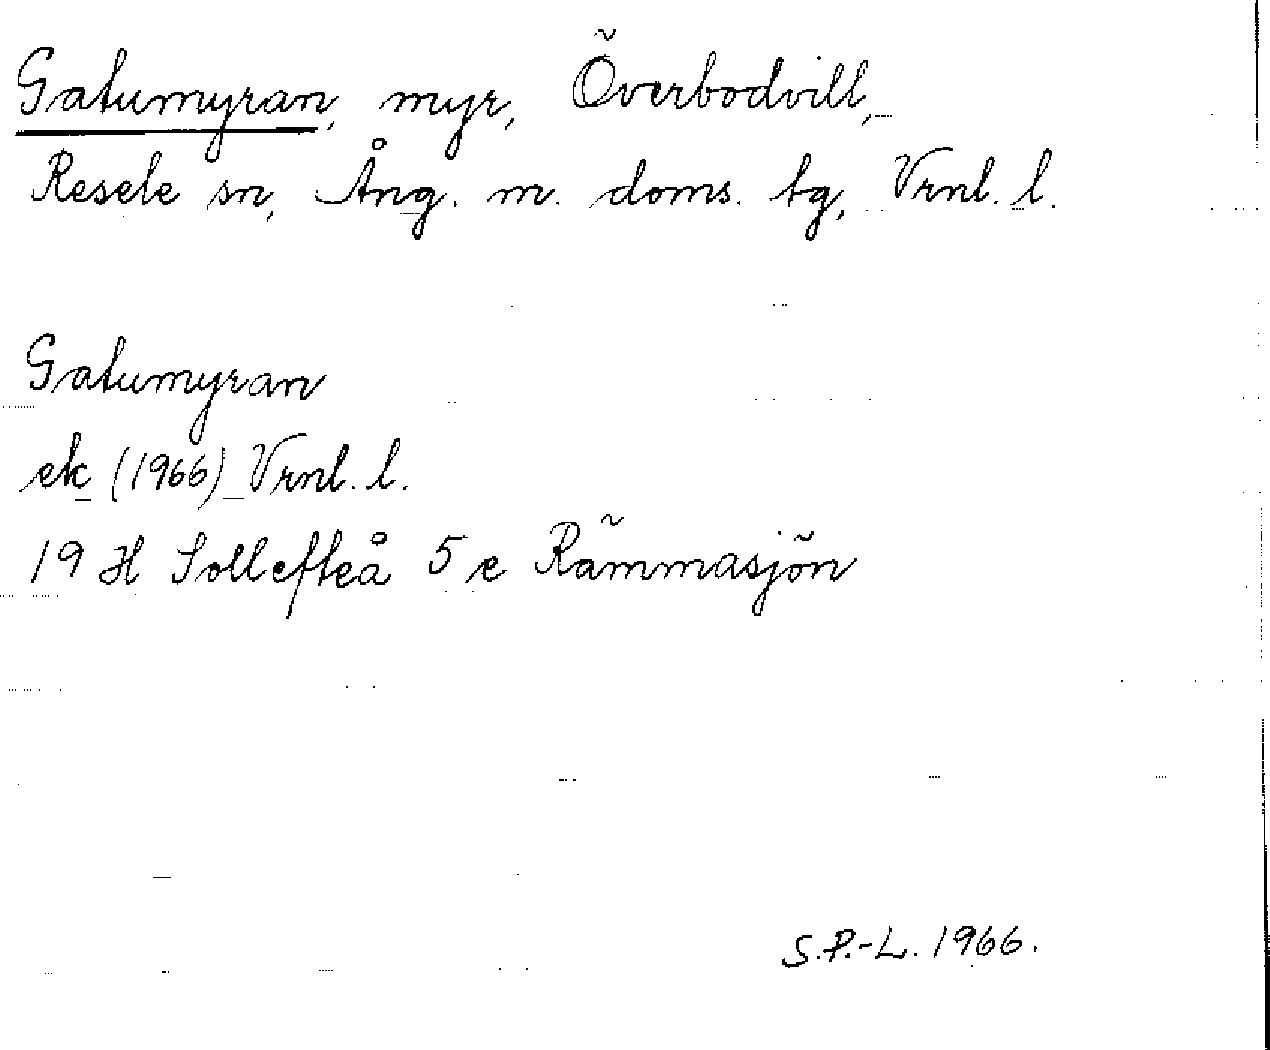 Gatumyran, myr, Överbodvill,
Resele sn, Ång. m. doms. tg, Vrnl. l.
Gatumyran
ek (1966) Vrnl. l.
19 H Sollefteå 5 e Rämmasjön
S.P.-L. 1966.